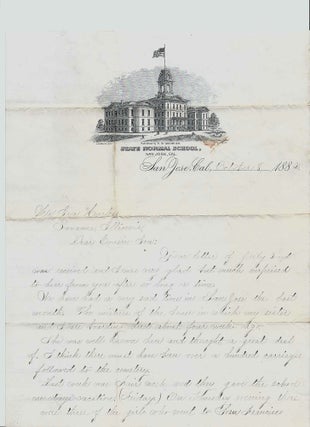 STATE NORMAL SCHOOL,
SAN JOSE, CAL.
San Jose, Cal., October 8, 188
Illinois
Dear Cousin
Your letter of July
was received and was very glad but much surprised
to hear from you after so long a time.
We have had a very sad time in San Jose the last
month. The mistress of the house in which my sister
and I are boarding died about four weeks ago.
She was well known here and thought a great deal
of. I think there must have been over a hundred carriages
followed to the cemetery.
Last week was Fair week and they gave the school
one days vacation (Friday). On Monday evening there
were three of the girls who went to San Francisco